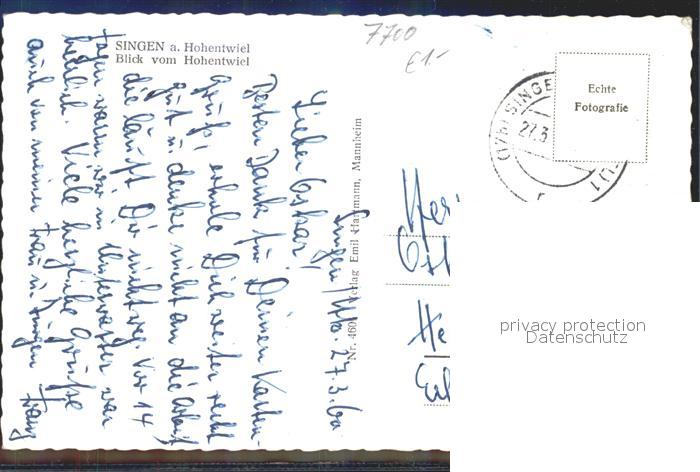 SINGEN a. Hohentwiel
Blick vom Hohentwiel
7700
€1.-
Singen/Htw. 27.3.60
Lieber Oskar!
Besten Dank für Deinen Karten-
gruß, erhole Dich weiter recht
gut u. denke nicht an die Arbeit
die läuft Dir nicht weg. Vor 14
Tagen waren wir in war
herrlich. Viele herzliche Grüße
auch von meiner Frau u. Jungen Franz
Nr. 460 Verlag Emil Hartmann, Mannheim
Echte
Fotografie
(17b) SINGEN
27.3
Her
Os
He
privacy protection
Datenschutz